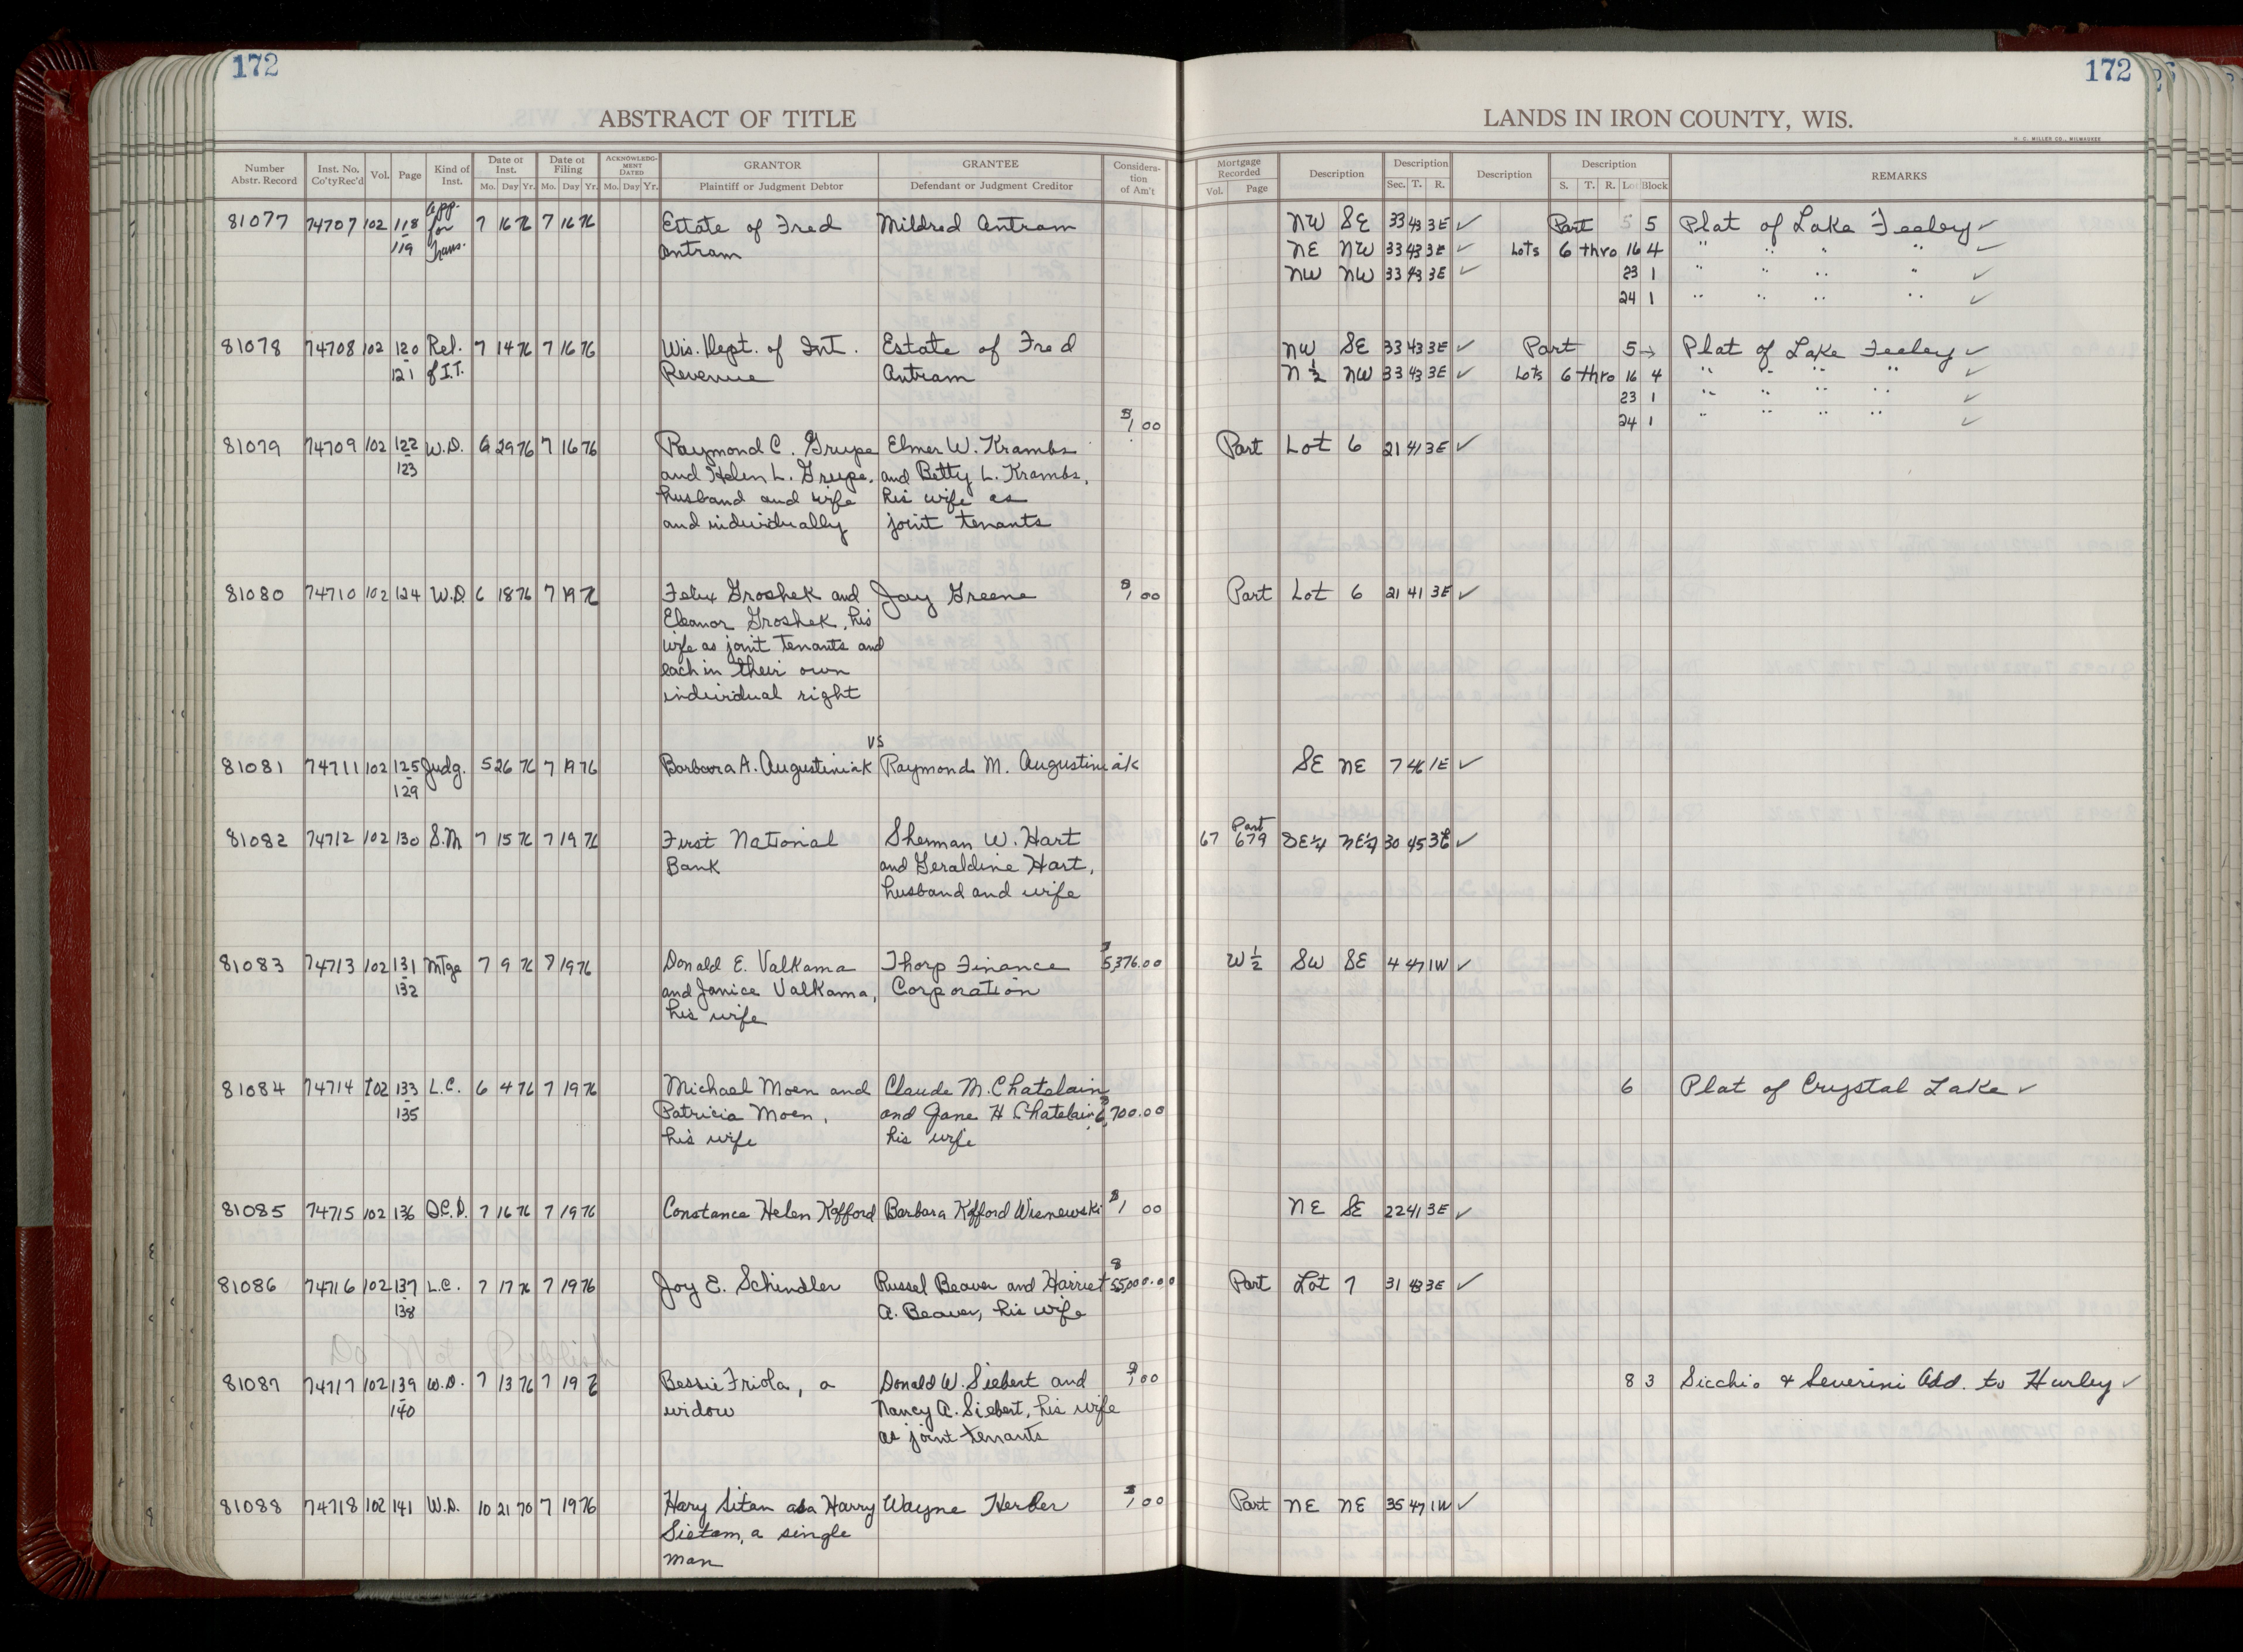 172
172
ABSTRACT OF TITLE
LANDS IN IRON COUNTY, WIS.
H. C. MILLER CO., MILWAUKEE
Number Abstr. Record Inst. No. Co'ty Rec'd Vol. Page Kind of Inst. Date of Inst. Mo. Day Yr. Date of Filing Mo. Day Yr. ACKNOWLEDGMENT DATED Mo. Day Yr. GRANTOR Plaintiff or Judgment Debtor GRANTEE Defendant or Judgment Creditor Consideration of Am't Mortgage Recorded Vol. Page Description Description Sec. T. R. Description Description S. T. R. Lot Block REMARKS
81077 74707 102 118 App. for Trans. 7 16 76 7 16 76 Estate of Fred Mildred Antram NW SE 33 43 3E ✓ Part 5 5 Plat of Lake Feeley ✓
- 119 Antram NE NW 33 43 3E ✓ Lots 6 thro 16 4 " " " " ✓
NW NW 33 43 3E ✓ 23 1 " " " " ✓
24 1 " " " " ✓
81078 74708 102 120 Rel. 7 14 76 7 16 76 Wis. Dept. of Int. Estate of Fred NW SE 33 43 3E ✓ Part 5 → Plat of Lake Feeley ✓
- 121 of I.T. Revenue Antram N ½ NW 33 43 3E ✓ Lots 6 thro 16 4 " " " " ✓
23 1 " " " " ✓
24 1 " " " " ✓
81079 74709 102 122 W.D. 6 29 76 7 16 76 Raymond C. Grupe Elmer W. Krambs $1 00 Part Lot 6 21 41 3E ✓
- 123 and Helen L. Grupe, and Betty L. Krambs,
husband and wife his wife as
and individually joint tenants
81080 74710 102 124 W.D. 6 18 76 7 19 76 Felix Groshek and Jay Greene $1 00 Part Lot 6 21 41 3E ✓
Eleanor Groshek, his
wife as joint tenants and
each in their own
individual right
81081 74711 102 125 Judg. 5 26 76 7 19 76 Barbara A. Augustiniak vs Raymond M. Augustiniak SE NE 7 46 1E ✓
- 129
81082 74712 102 130 S.M 7 15 76 7 19 76 First National Sherman W. Hart 67 679 Part SE¼ NE¼ 30 45 3E ✓
Bank and Geraldine Hart,
husband and wife
81083 74713 102 131 Mtge 7 9 76 7 19 76 Donald E. Valkama Thorp Finance $5,376.00 W ½ SW SE 4 47 1W ✓
- 132 and Janice Valkama, Corporation
his wife
81084 74714 102 133 L.C. 6 4 76 7 19 76 Michael Moen and Claude M. Chatelain 6 Plat of Crystal Lake ✓
- 135 Patricia Moen, and Jane H Chatelain, $6,700.00
his wife his wife
81085 74715 102 136 Q.C.D. 7 16 76 7 19 76 Constance Helen Kofford Barbara Kofford Wisnewski $1 00 NE SE 22 41 3E ✓
81086 74716 102 137 L.C. 7 17 76 7 19 76 Joy E. Schindler Russel Beaver and Harriet $55,000.00 Part Lot 7 31 43 3E ✓
- 138 A. Beaver, his wife
Do Not Publish
81087 74717 102 139 W.D. 7 13 76 7 19 76 Bessie Friola, a Donald W. Siebert and $1 00 8 3 Sicchio & Severini Add. to Hurley ✓
- 140 widow Nancy A. Siebert, his wife
as joint tenants
81088 74718 102 141 W.D. 10 21 70 7 19 76 Hary Sitam aka Harry Wayne Herler $1 00 Part NE NE 35 47 1W ✓
Sietam, a single
man